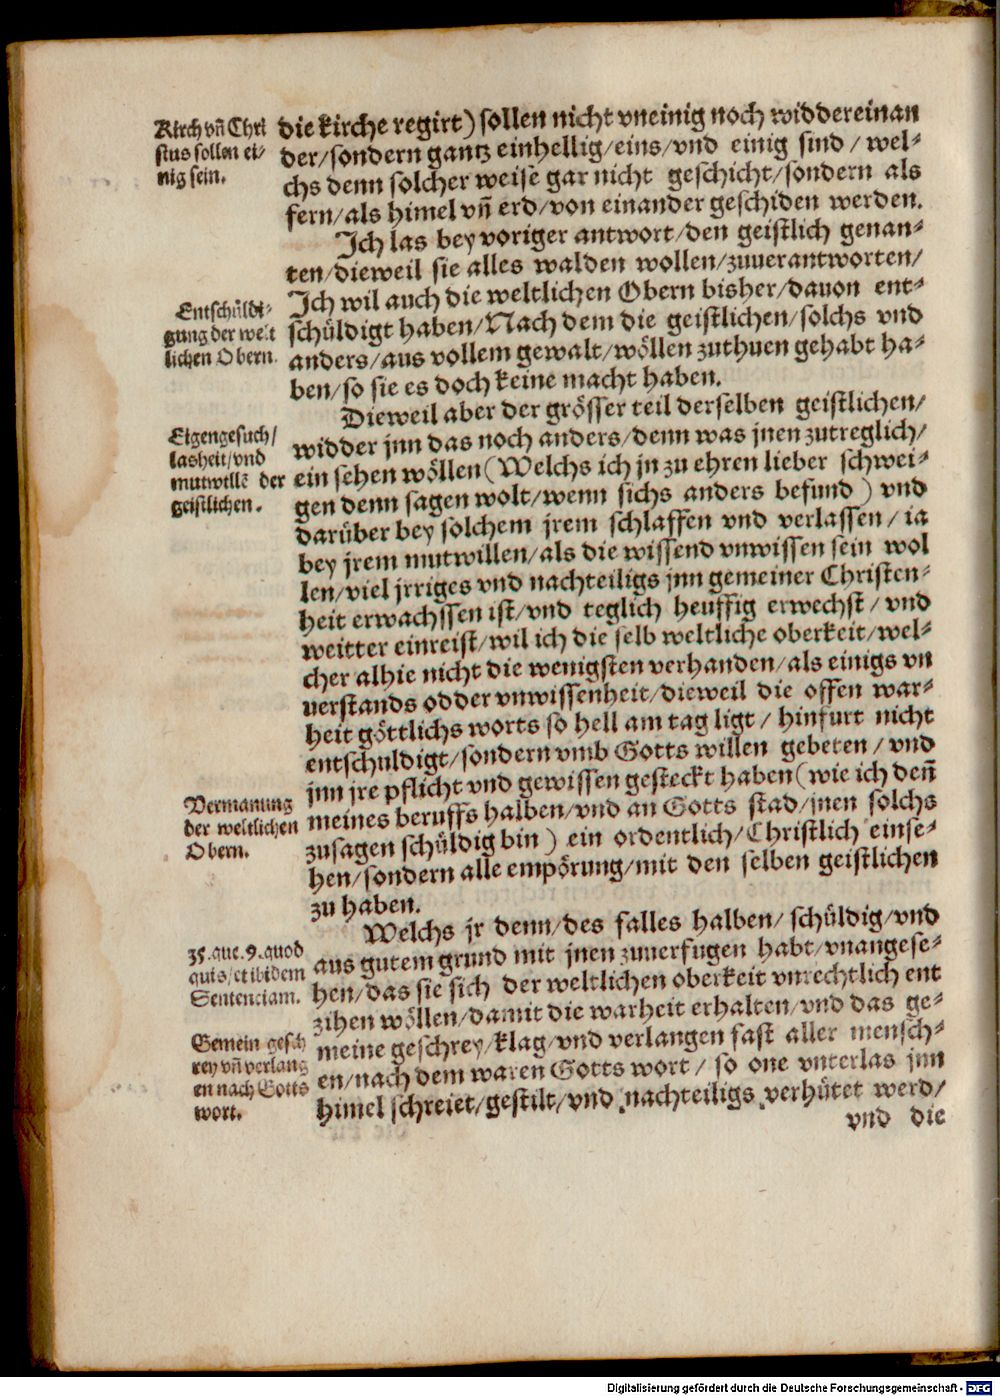 Kirch vñ Chri
stus sollen ei⸗
nig sein.
die kirche regirt) sollen nicht vneinig noch widdereinan
der/sondern gantz einhellig/eins/vnd einig sind/wel⸗
chs denn solcher weise gar nicht geschicht/sondern als
fern/als himel vñ erd/von einander geschiden werden.
Ich las bey voriger antwort/den geistlich genan⸗
ten/dieweil sie alles walden wollen/zuuerantworten/
Entschüldi⸗
gung der welt
lichen Obern.
Ich wil auch die weltlichen Obern bisher/dauon ent⸗
schüldigt haben/Nach dem die geistlichen/solchs vnd
anders/aus vollem gewalt/wöllen zuthuen gehabt ha⸗
ben/so sie es doch keine macht haben.
Dieweil aber der grösser teil derselben geistlichen/
Eigengesuch/
lasheit/vnd
mutwillē der
geistlichen.
widder jnn das noch anders/denn was jnen zutreglich/
ein sehen wöllen (Welchs ich jn zu ehren lieber schwei⸗
gen denn sagen wolt/wenn sichs anders befund) vnd
darüber bey solchem jrem schlaffen vnd verlassen/ia
bey jrem mutwillen/als die wissend vnwissen sein wol
len/viel jrriges vnd nachteiligs jnn gemeiner Christen⸗
heit erwachssen ist/vnd teglich heuffig erwechst/vnd
weitter einreist/wil ich die selb weltliche oberkeit/wel⸗
cher alhie nicht die wenigsten verhanden/als einigs vn
uerstands odder vnwissenheit/dieweil die offen war⸗
heit göttlichs worts so hell am tag ligt/hinfurt nicht
entschuldigt/sondern vmb Gotts willen gebeten/vnd
jnn jre pflicht vnd gewissen gesteckt haben (wie ich deñ
Vermanung
der weltlichen
Obern.
meines beruffs halben/vnd an Gotts stad/jnen solchs
zusagen schüldig bin) ein ordentlich/Christlich einse⸗
hen/sondern alle empörung/mit den selben geistlichen
zu haben.
Welchs jr denn/des falles halben/schüldig/vnd
35.que.9.quod
quis/et ibidem
Sentenciam.
aus gutem grund mit jnen zuuerfugen habt/vnangese⸗
hen/das sie sich der weltlichen oberkeit vnrechtlich ent
zihen wöllen/damit die warheit erhalten/vnd das ge⸗
Gemein gesch
rey vñ verlang
en nach Gotts
wort.
meine geschrey/klag/vnd verlangen fast aller mensch⸗
en/nach dem waren Gotts wort/so one vnterlas jnn
himel schreiet/gestilt/vnd nachteiligs verhütet werd/
vnd die
Digitalisierung gefördert durch die Deutsche Forschungsgemeinschaft - DFG